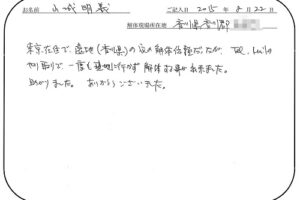 お名前 山城明義 ご記入日 2015年8月22日
解体現場所在地 香川県香川郡
東京在住で、遠地(香川県)の家の解体依頼だったが、TEL、Lineの
やり取りで一度も現地に行かず解体する事が出来ました。
助かりました。ありがとうございました。